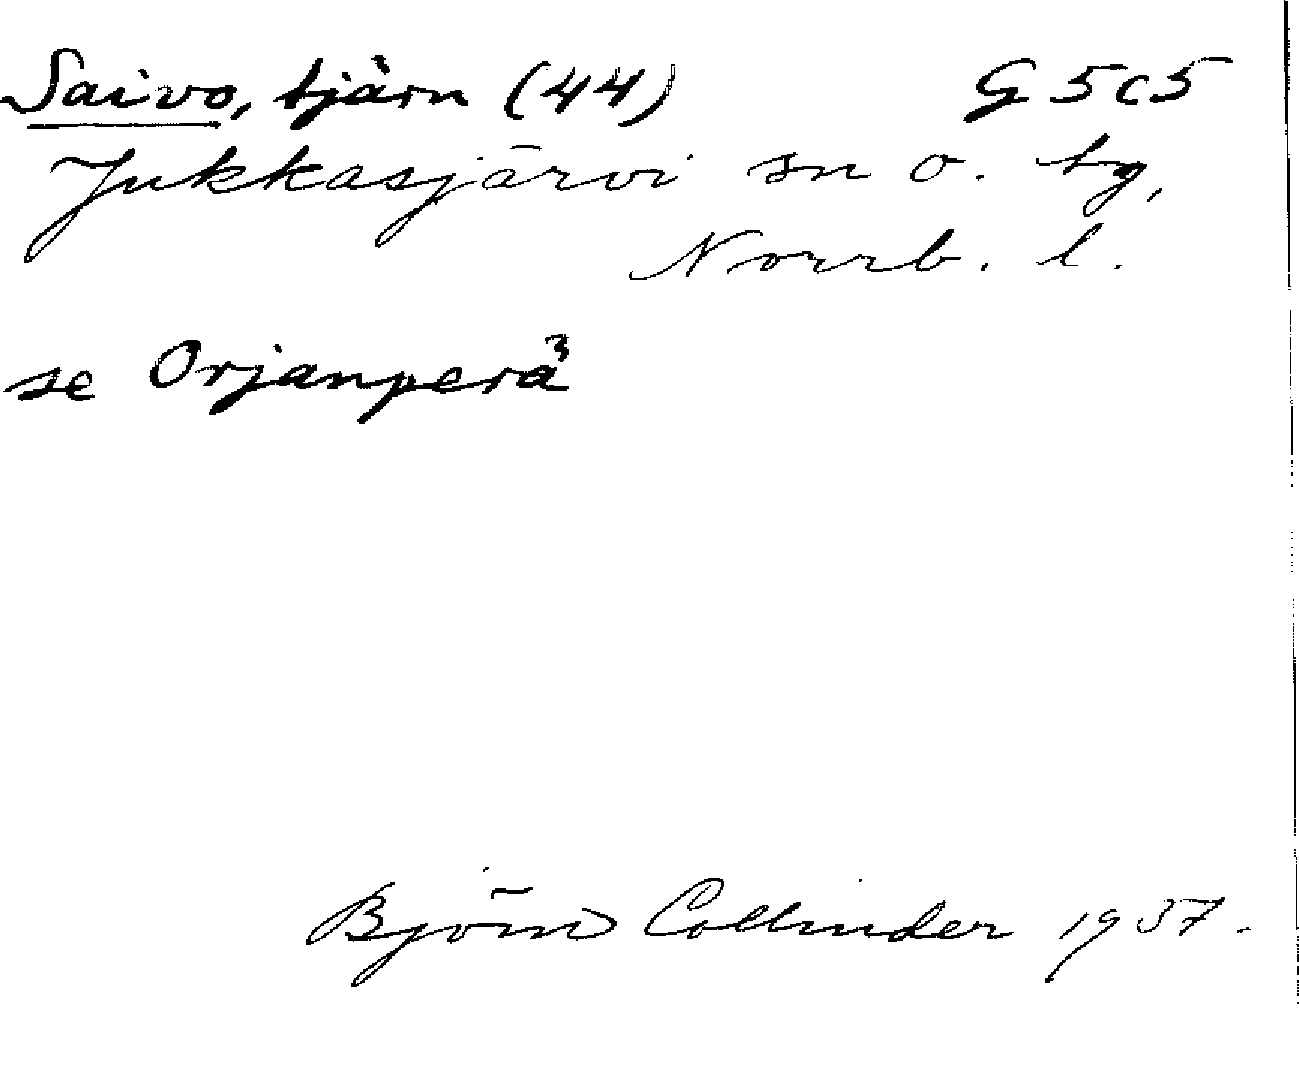 Saivo, tjärn (44) G 5c5
Jukkasjärvi sn o. tg,
Norrb. l.
se Orjanperä
Björn Collinder 1937.